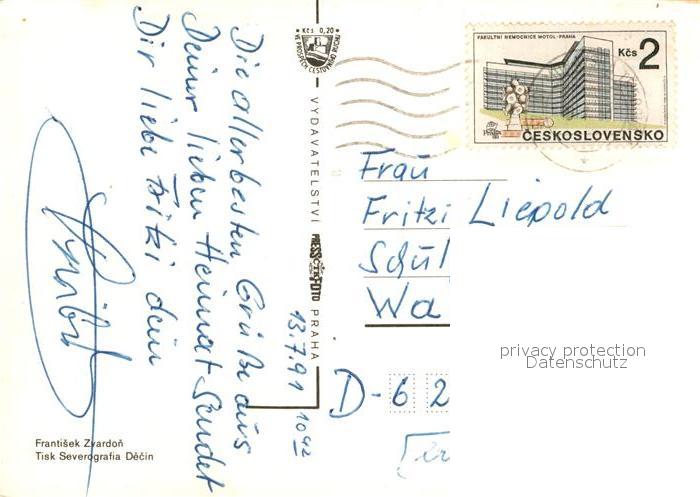 Die allerbesten Grüße aus
Deiner lieben Heimat sendet
Dir liebe Fritzi dein
Kčs 0,20
VE PROSPĚCH CESTOVNÍHO RUCHU
VYDAVATELSTVÍ PRESSFOTO PRAHA
13.7.91
František Zvardoň
Tisk Severografia Děčín
FAKULTNÍ NEMOCNICE MOTOL-PRAHA
Kčs 2
ČESKOSLOVENSKO
Frau
Fritzi Liepold
Schul
Wa
D-62
privacy protection
Datenschutz